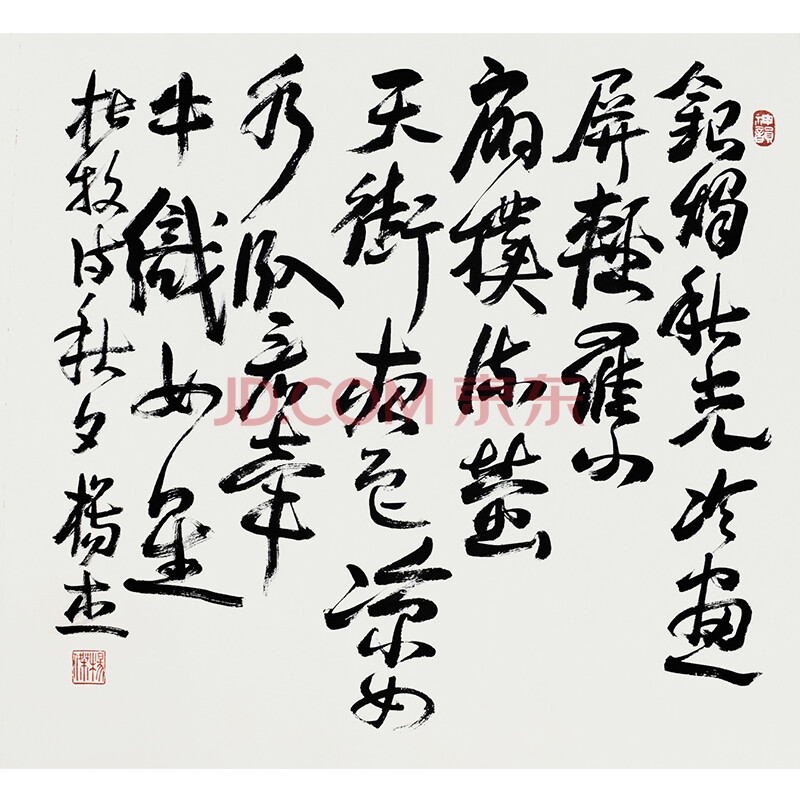 銀燭秋光冷畫
屏輕羅小
扇撲流螢
天街夜色涼如
水臥看牽
牛織女星
杜牧诗秋夕 楊杰
神韻
JD.COM 京东